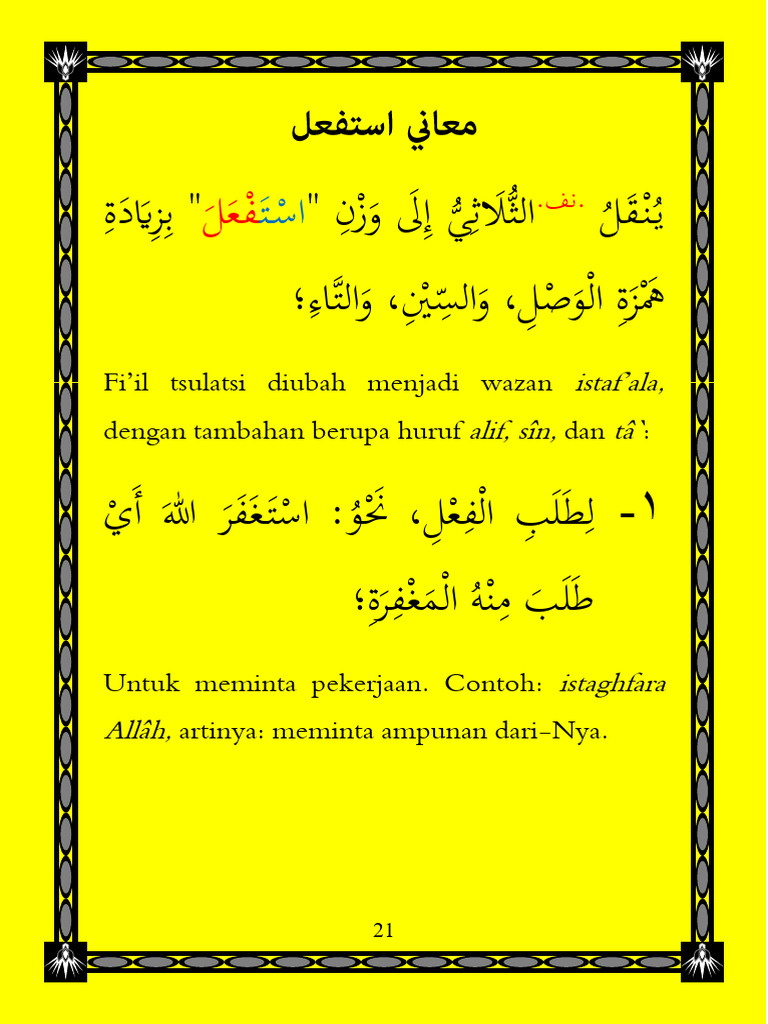 معاني استفعل
يُنْقَلُ .نف. الثُّلَاثِيُّ إِلَى وَزْنِ "اسْتَفْعَلَ" بِزِيَادَةِ
هَمْزَةِ الْوَصْلِ، وَالسِّيْنِ، وَالتَّاءِ؛
Fi’il tsulatsi diubah menjadi wazan istaf’ala,
dengan tambahan berupa huruf alif, sîn, dan tâ`:
١- لِطَلَبِ الْفِعْلِ، نَحْوُ: اسْتَغَفَرَ اللهَ أَيْ
طَلَبَ مِنْهُ الْمَغْفِرَةِ؛
Untuk meminta pekerjaan. Contoh: istaghfara
Allâh, artinya: meminta ampunan dari-Nya.
21